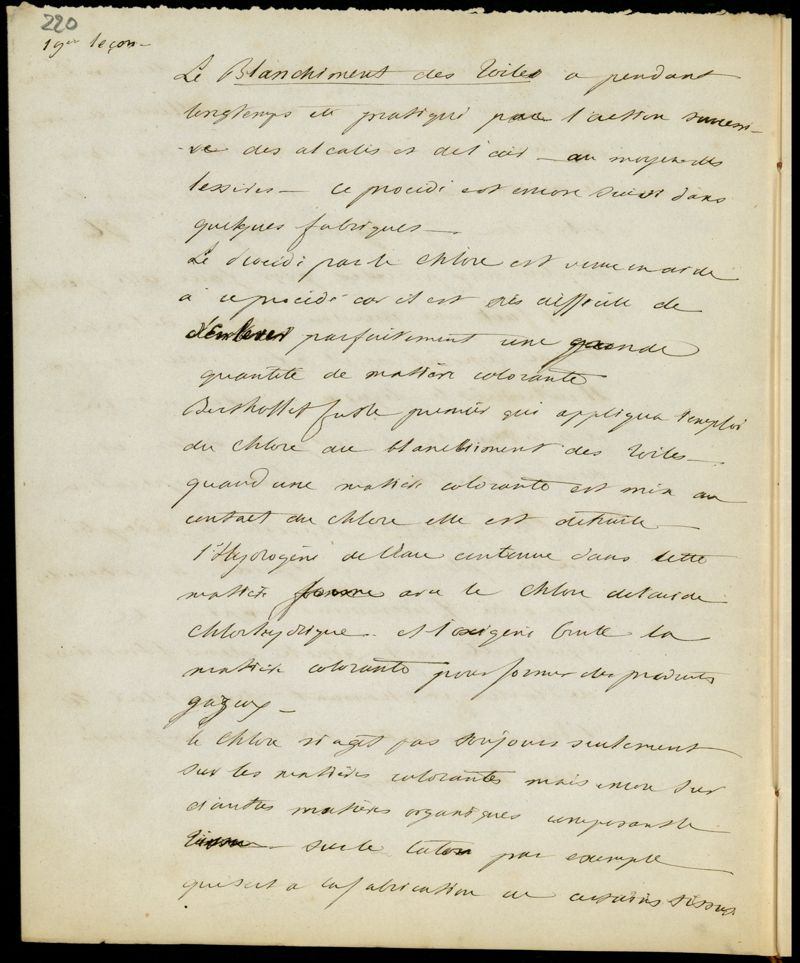 220
19eme leçon —
Le Blanchiment des Toiles a pendant
longtemps été pratiqué par l'action successi-
-ve des alcalis et de l'air — au moyen des
lessives — ce procédé est encore suivi dans
quelques fabriques —
Le procédé par le chlore est venu en aide
à ce procédé car il est très difficile de
d'enlever parfaitement une grande
quantité de matière colorante
Berthollet fut le premier qui appliqua l'emploi
du chlore au blanchiment des Toiles —
quand une matière colorante est mise au
contact du chlore elle est détruite —
l'Hydrogène de l'eau contenue dans cette
matière forme avec le chlore de l'acide
chlorhydrique. et l'oxigène brule la
matière colorante pour former des produits
gazeux —
le chlore n'agit pas toujours seulement
sur les matières colorantes mais encore sur
d'autres matières organiques composant le
tissu — sur le coton par exemple
qui sert à la fabrication de certains tissus